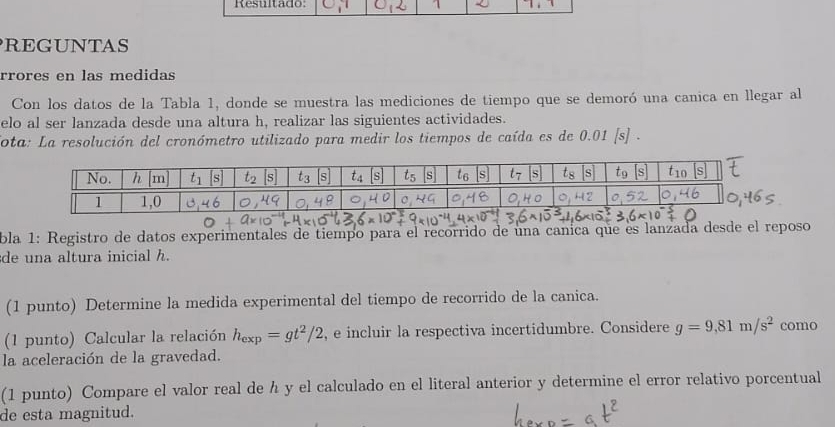 Resultado: 0,1 0,2 1 2
PREGUNTAS
rrores en las medidas
Con los datos de la Tabla 1, donde se muestra las mediciones de tiempo que se demoró una canica en llegar al
elo al ser lanzada desde una altura h, realizar las siguientes actividades.
ota: La resolución del cronómetro utilizado para medir los tiempos de caída es de 0.01 [s] .
No. h [m] t₁ [s] t₂ [s] t₃ [s] t₄ [s] t₅ [s] t₆ [s] t₇ [s] t₈ [s] t₉ [s] t₁₀ [s] t̄
1 1,0 0,46 0,49 0,48 0,40 0,49 0,48 0,40 0,42 0,52 0,46 0,46 s
0 + 9×10⁻⁴ + 4×10⁻⁴ + 3,6×10⁻³ + 9×10⁻⁴ + 4×10⁻⁴ 3,6×10⁻³ + 1,6×10⁻³ + 3,6×10⁻³ + 0
bla 1: Registro de datos experimentales de tiempo para el recorrido de una canica que es lanzada desde el reposo
de una altura inicial h.
(1 punto) Determine la medida experimental del tiempo de recorrido de la canica.
(1 punto) Calcular la relación hexp = gt²/2, e incluir la respectiva incertidumbre. Considere g = 9,81 m/s² como
la aceleración de la gravedad.
(1 punto) Compare el valor real de h y el calculado en el literal anterior y determine el error relativo porcentual
de esta magnitud.
hexp = gt²